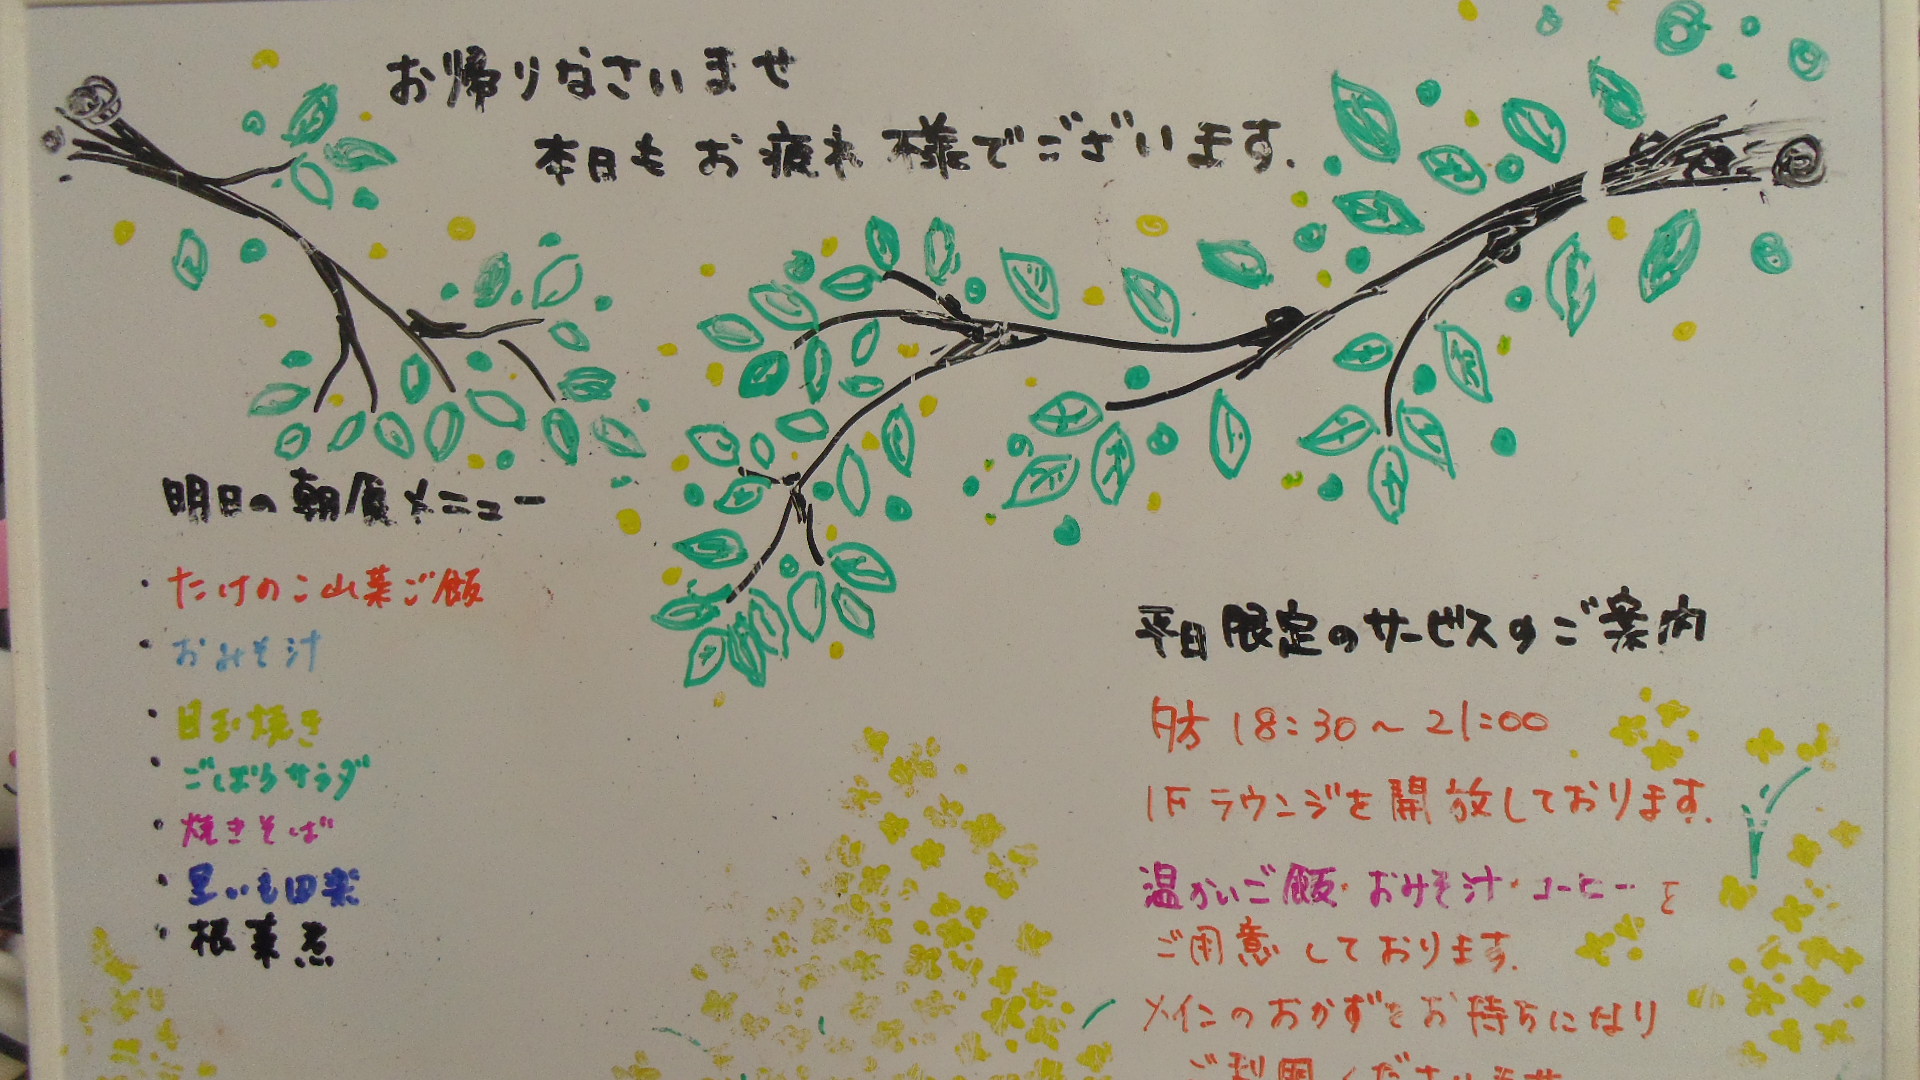 お帰りなさいませ
本日もお疲れ様でございます.
明日の朝食メニュー
・たけのこ山菜ご飯
・おみそ汁
・目玉焼き
・ごぼうサラダ
・焼きそば
・里いも田楽
・根菜煮
平日限定のサービスのご案内
夕方 18:30～21:00
1Fラウンジを開放しております.
温かいご飯・おみそ汁・コーヒーを
ご用意しております.
メインのおかずをお持ちになり
ご利用くださいませ